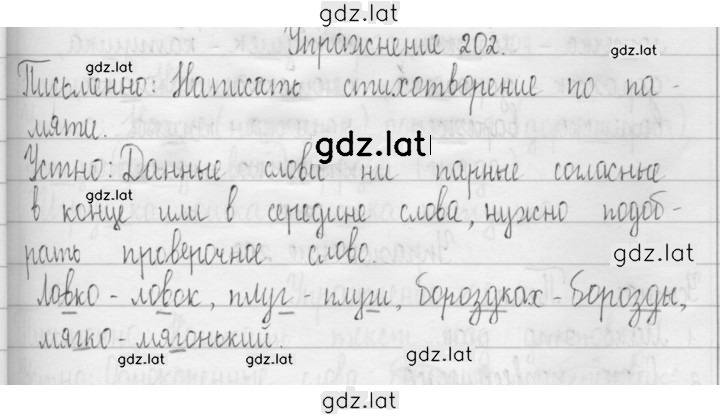 gdz.lat
Упражнение 202.
gdz.lat
gdz.lat
Письменно: Написать стихотворение по па-
мяти.
gdz.lat
Устно: Данные слова на парные согласные
gdz.lat
в конце или в середине слова, нужно подоб-
рать проверочное слово
gdz.lat
Ловко - ловок, плуг - плуги, бороздках - борозды,
мягко - мягонький.
gdz.lat
gdz.lat
gdz.lat
gdz.lat